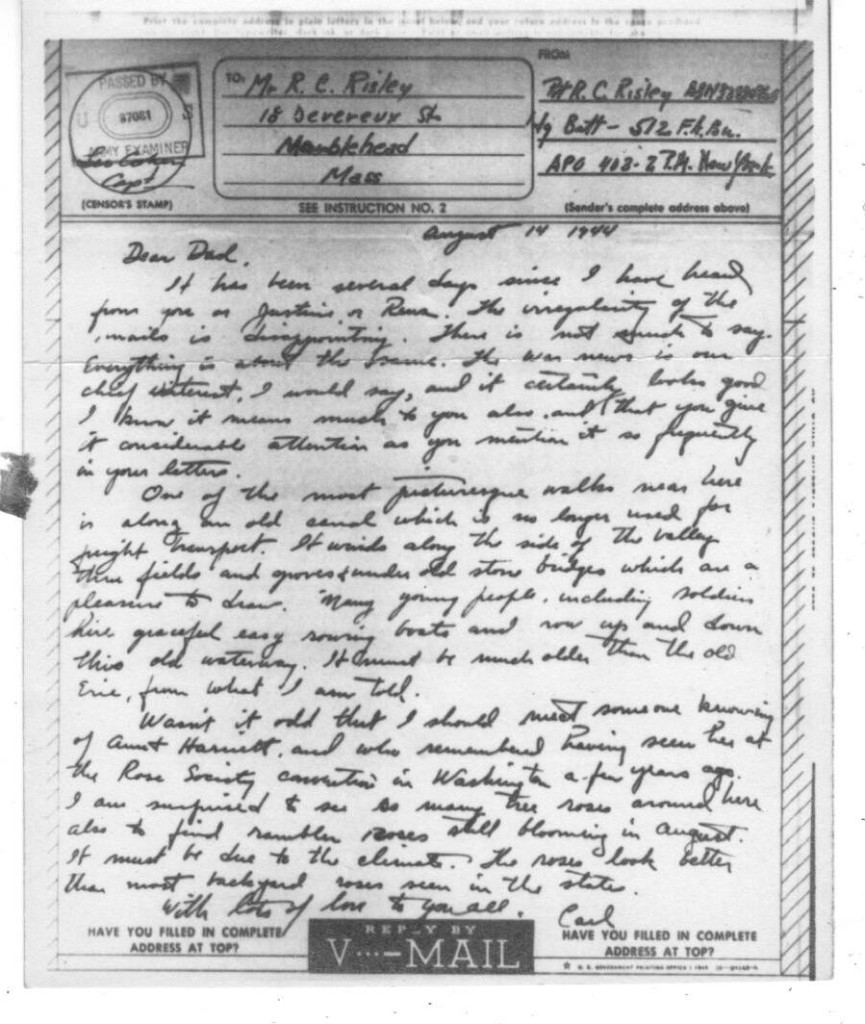 Print the complete address in plain letters in the below, and your return address in the space provided
PASSED BY
U S
87081
ARMY EXAMINER
Capt
(CENSOR'S STAMP)
TO: Mr R. C. Risley
18 Devereux St
Marblehead
Mass
SEE INSTRUCTION NO. 2
FROM
Pvt R. C. Risley ASN
Hq Batt - 512 F.A. Bn.
APO 403 - % P.M. New York
(Sender's complete address above)
August 14 1944
Dear Dad,
It has been several days since I have heard
from you or Justine or Rena. The irregularity of the
mails is disappointing. There is not much to say.
Everything is about the same. The war news is our
chief interest, I would say, and it certainly looks good
I know it means much to you also, and that you give
it considerable attention as you mention it so frequently
in your letters.
One of the most picturesque walks near here
is along an old canal which is no longer used for
freight transport. It winds along the side of the valley
thru fields and groves & under old stone bridges which are a
pleasure to draw. Many young people, including soldiers
hire graceful easy rowing boats and row up and down
this old waterway. It must be much older than the old
Erie, from what I am told.
Wasn't it odd that I should meet someone knowing
of Aunt Harriett, and who remembered having seen her at
the Rose Society convention in Washington a few years ago.
I am surprised to see so many tree roses around here
also to find rambler roses still blooming in August.
It must be due to the climate. The roses look better
than most backyard roses seen in the states.
With lots of love to you all.
Carl
HAVE YOU FILLED IN COMPLETE
ADDRESS AT TOP?
REPLY BY
V···—MAIL
HAVE YOU FILLED IN COMPLETE
ADDRESS AT TOP?
U. S. GOVERNMENT PRINTING OFFICE : 1943